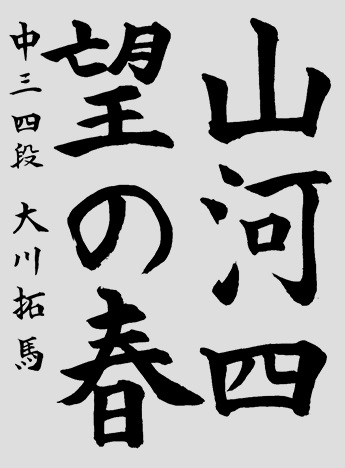 山河四
望の春
中三 四段 大川拓馬